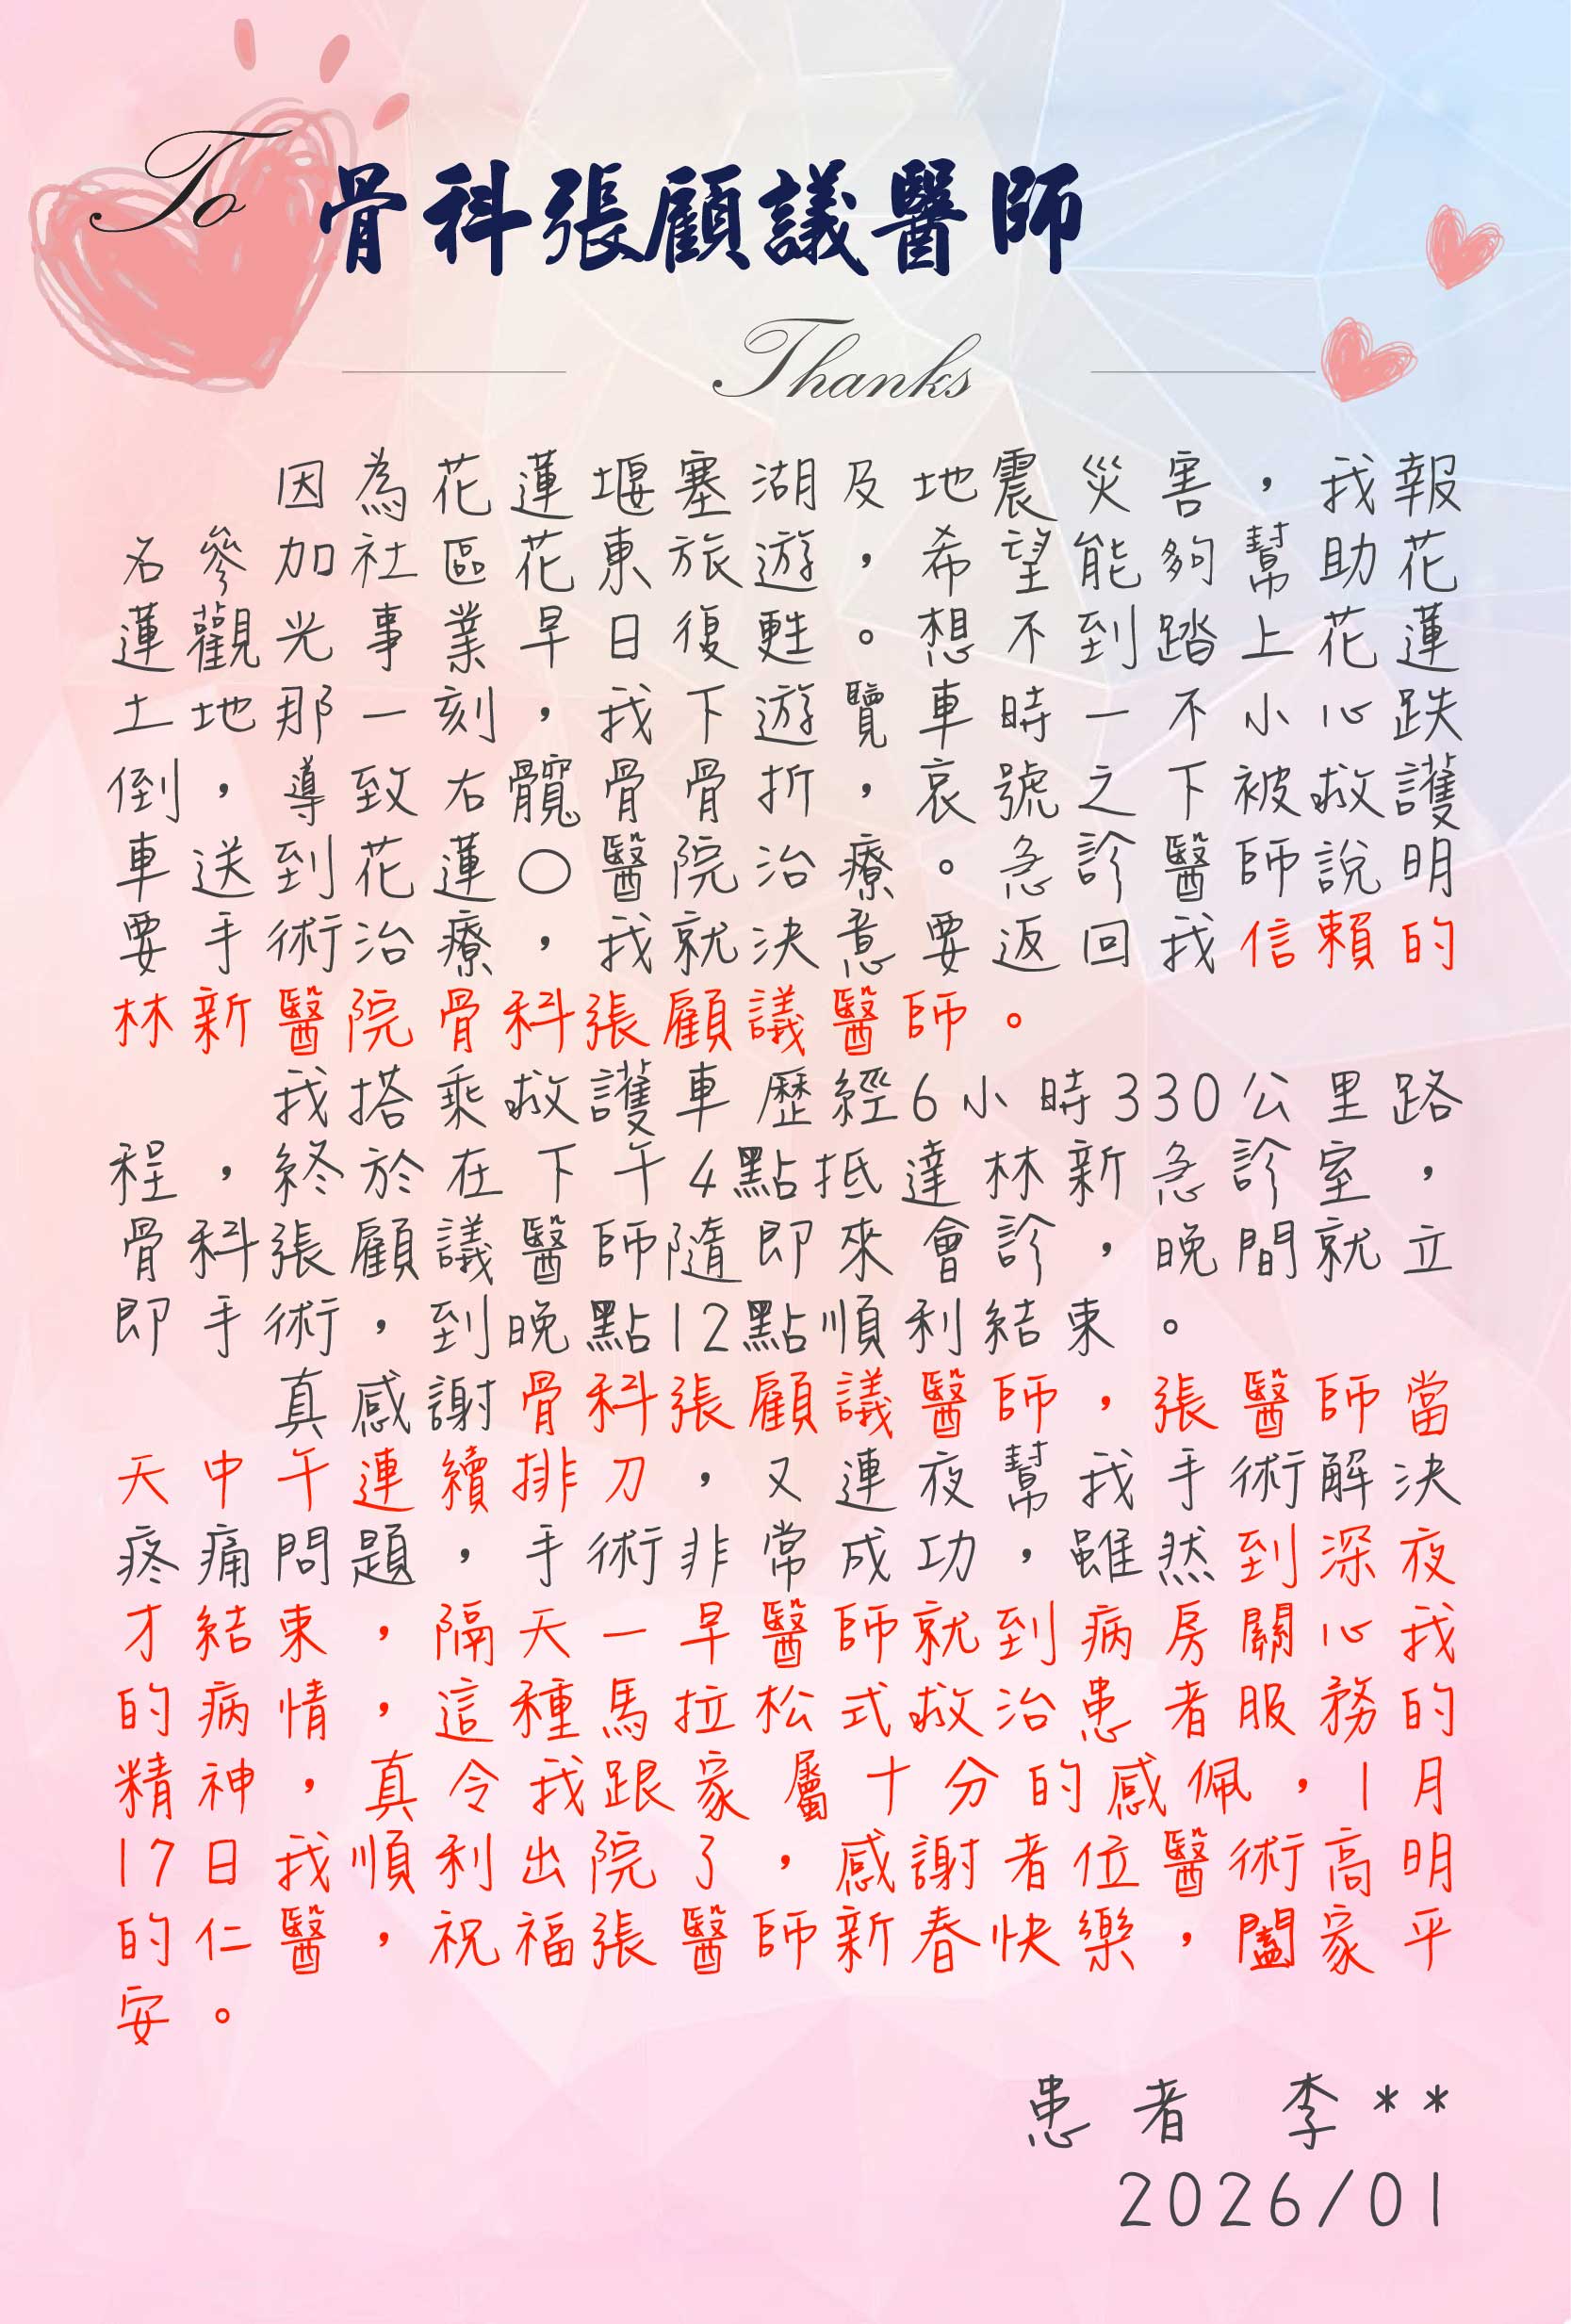 To 骨科張顧議醫師
Thanks
因為花蓮堰塞湖及地震災害，我報
名參加社區花東旅遊，希望能夠幫助花
蓮觀光事業早日復甦。想不到踏上花蓮
土地那一刻，我下遊覽車時一不小心跌
倒，導致右髖骨骨折，哀號之下被救護
車送到花蓮○醫院治療。急診醫師說明
要手術治療，我就決意要返回我信賴的
林新醫院骨科張顧議醫師。
我搭乘救護車歷經6小時330公里路
程，終於在下午4點抵達林新急診室，
骨科張顧議醫師隨即來會診，晚間就立
即手術，到晚點12點順利結束。
真感謝骨科張顧議醫師，張醫師當
天中午連續排刀，又連夜幫我手術解決
疼痛問題，手術非常成功，雖然到深夜
才結束，隔天一早醫師就到病房關心我
的病情，這種馬拉松式救治患者服務的
精神，真令我跟家屬十分的感佩，1月
17日我順利出院了，感謝者位醫術高明
的仁醫，祝福張醫師新春快樂，闔家平
安。
患者 李**
2026/01